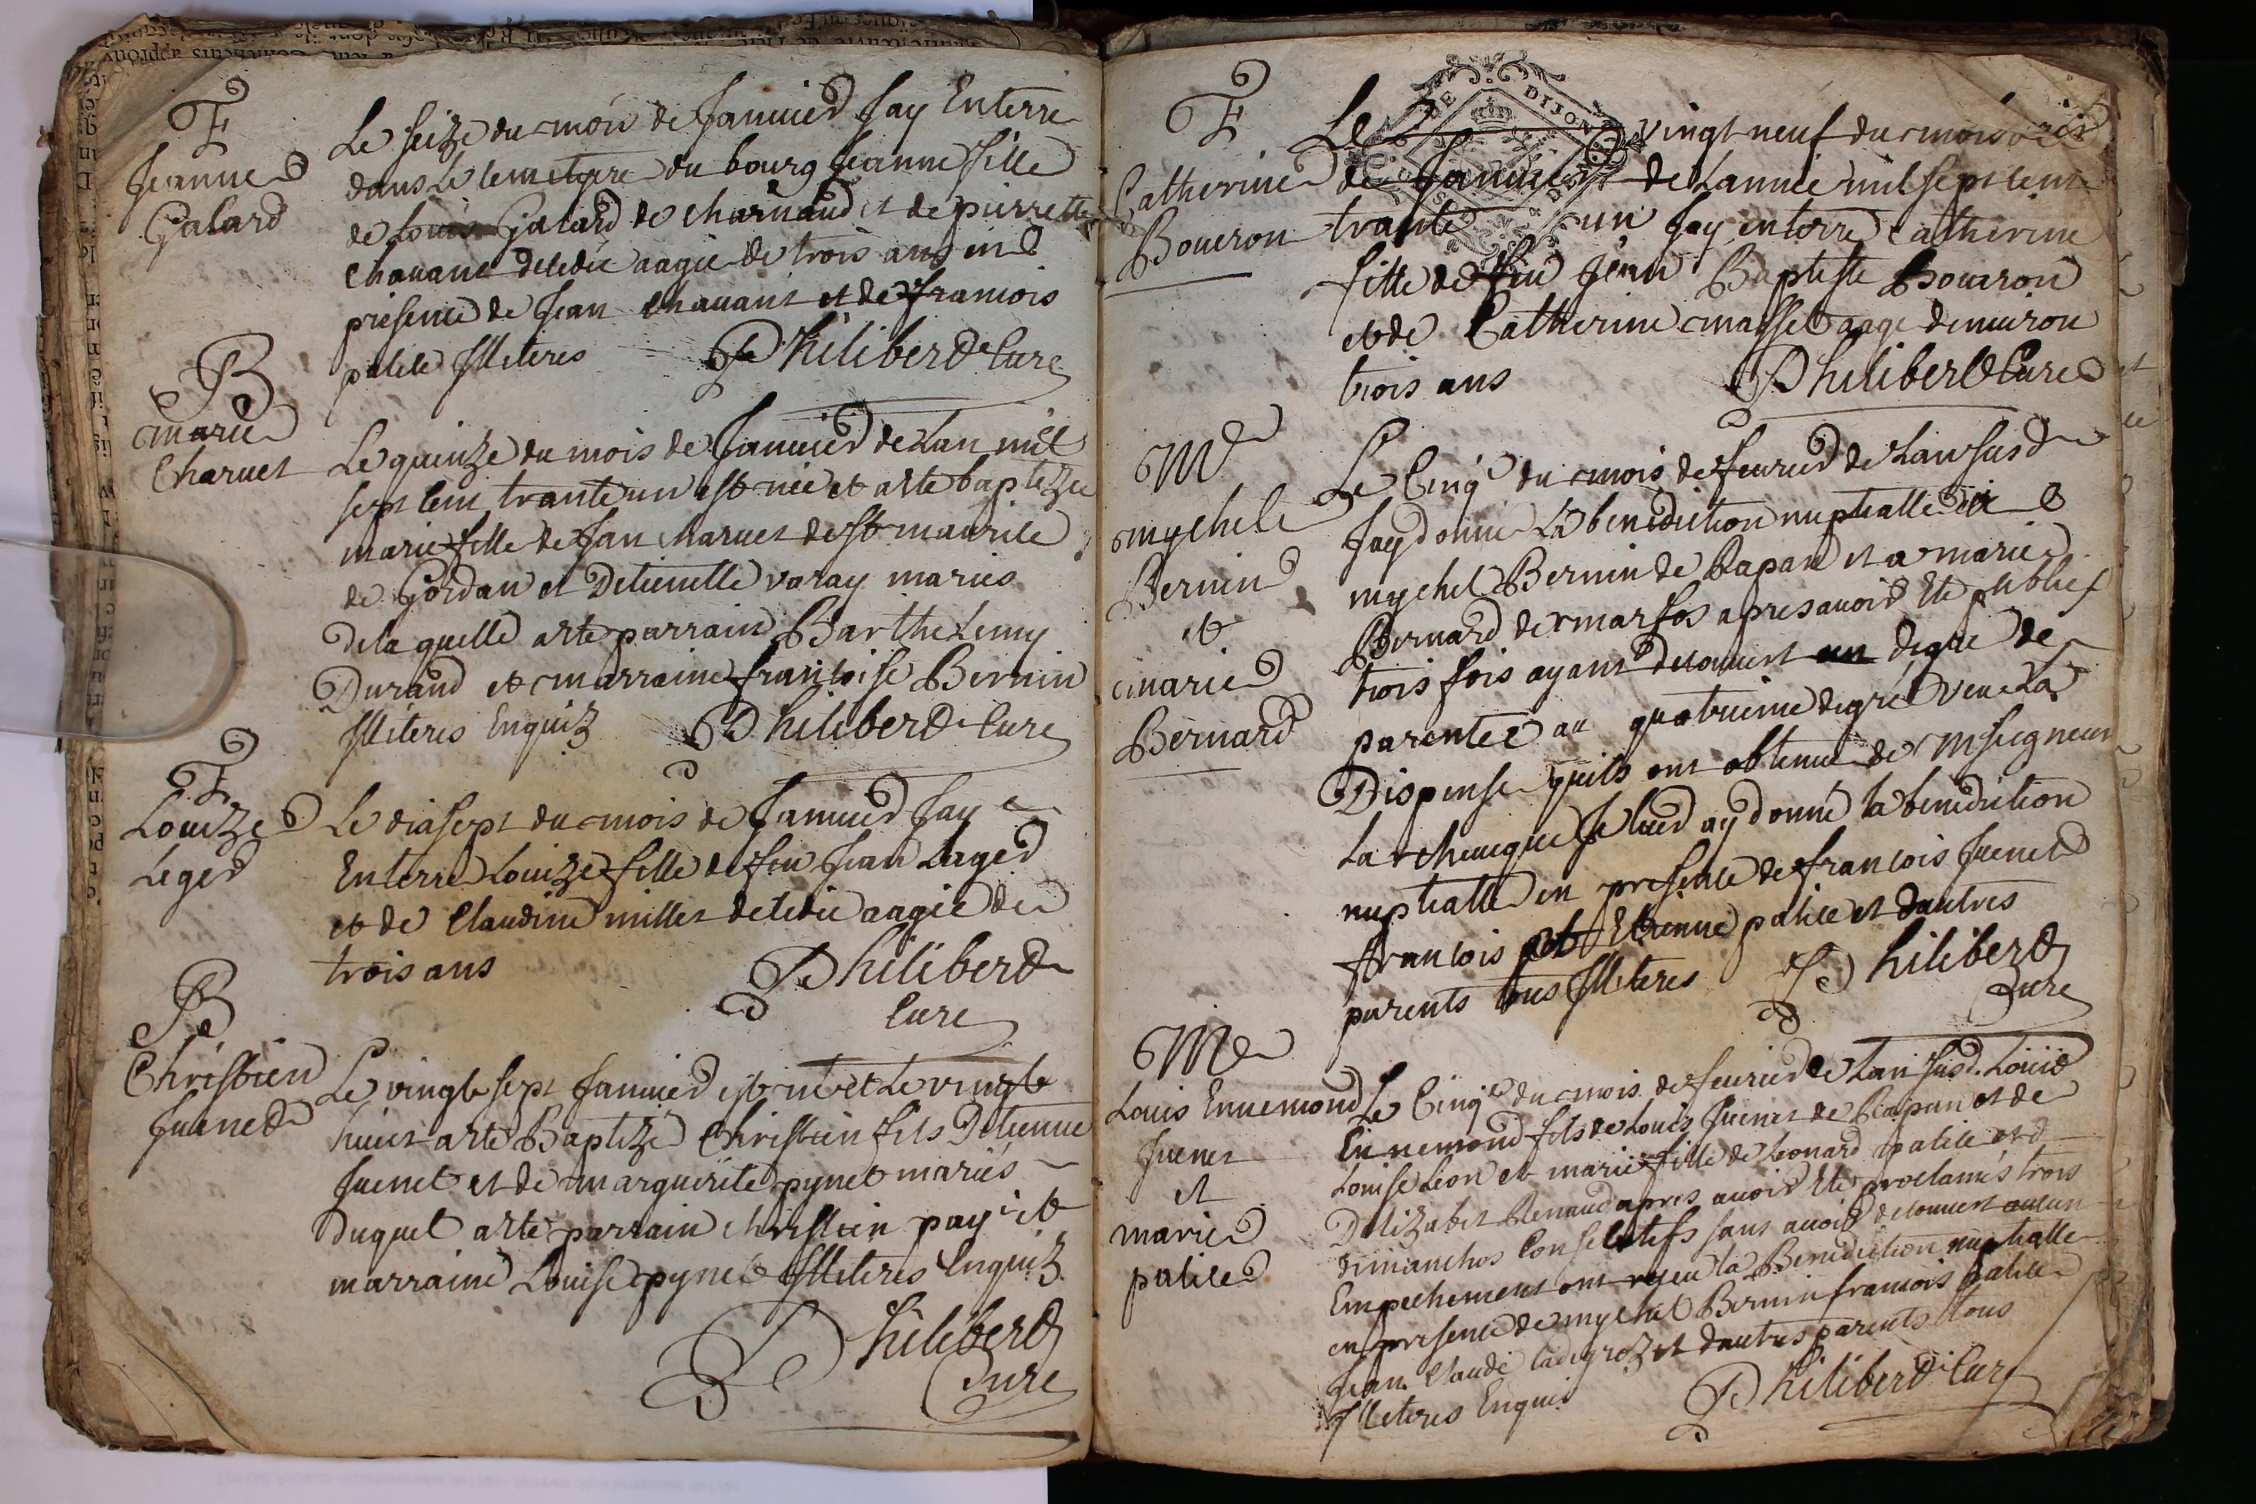 E
Jeanne
Galard
Le seize du mois de Januier Jay Enterre
dans le cemetyere du bourg Jeanne fille
de Louis Galard de charnaud et de pierrette
Chauane decedée aagée de trois ans en
presence de Jean Chauant et de francois
patile Illiteres Philiberd Cure
B
marie
Charuet
Le quinze du mois de Januier de Lan mil
sept cent trante un est née et a été baptizée
marie fille de Jan charuet de st maurice
de Gordan et Detienette varay mariés
de la quelle a été parrain Barthelemy
Durand et marraine francoise Bernin
Illiteres Enquiz Philiberd Cure
E
Louize
Leged
Le diasept du mois de Januier Jay
Enterre Louize fille de feu Jean Leged
et de Claudine millet decedée aagée de
trois ans Philiberd
Cure
B
Christien
Juened
Le vingt sept Januier est né et Le vingt
huict a été Baptizé Christien fils Detienne
Juenet et de marguerite pynet mariés
duquel a été parrain christien payi et
marraine Louise pynet Illiteres Enquiz
Philiberd
Cure
DIJON
E
Catherine
Boueron
Le vingt neuf du mois
de Januier de Lannée mil sept cent
trante un Jay enterre Catherine
fille de feu Jean Baptiste Boueron
et de Catherine masset aage denuiron
trois ans Philiberd Cure
M
mychele
Bernin
et
marie
Bernard
Le Cinqe du mois de feurier de Lan susd
Jay donné La benediction nuptialle a
mychel Bernin de Rapan et a marie
Bernard de marfos apres auoir Eté publies
trois fois ayant decouuert un degré de
parenteé au quatrieme degré veu La
Dispense quils ont obtenue de mseigneur
Larcheueque Je leur ay donné la benediction
nuptialle en presence de francois Juenet
francois et Etienne patile et dautres
parents tous Illiteres Philiberd
Cure
M
Louis Ennemond
Juenet
et
marie
patile
Le Cinqe du mois de feurier de Lan susd. Louis
Ennemond fils de Louis Juenet de Rapan et de
Louise Leon et marie fille de Leonard patile et
Delizabet Renaud apres auoir Eté proclamés trois
dimanches Consecutifs sans auoir decouuert aucun
Empechement ont reçeu la Benediction nuptialle
en presence de mychel Bernin francois patile
Jean Claude et dautres parents tous
Illiteres Enquis Philiberd Cure